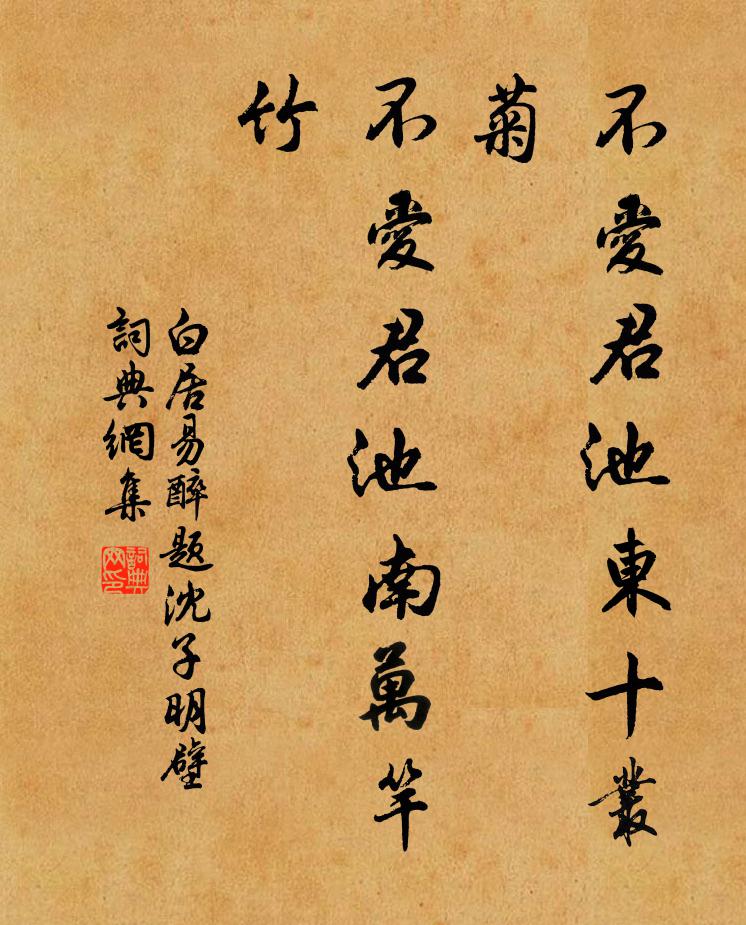 不愛君池東十叢
菊
不愛君池南萬竿
竹
白居易醉题沈子明壁
詞典網集
詞典
网印